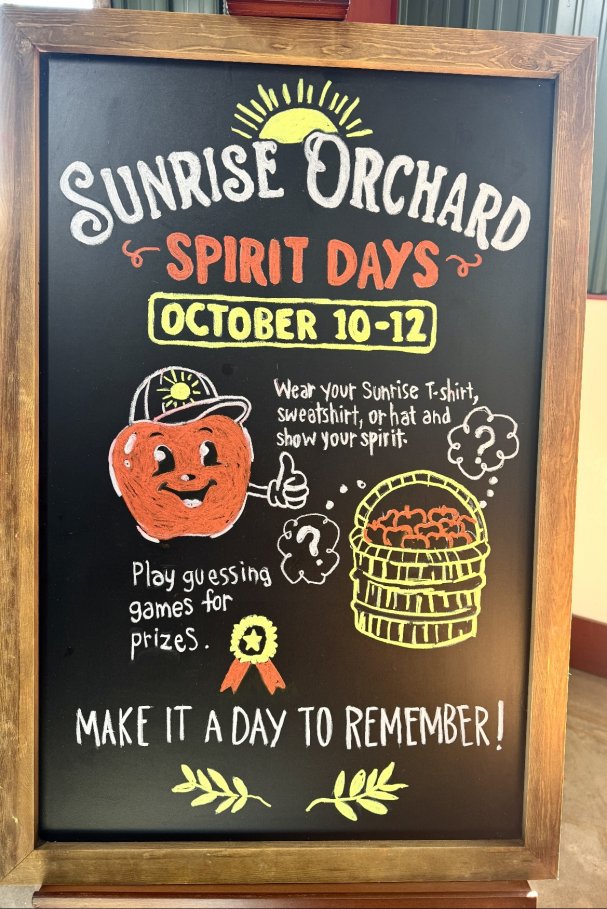 SUNRISE ORCHARD
SPIRIT DAYS
OCTOBER 10-12
Wear your Sunrise T-shirt,
sweatshirt, or hat and
show your spirit.
?
?
Play guessing
games for
prizes.
MAKE IT A DAY TO REMEMBER!